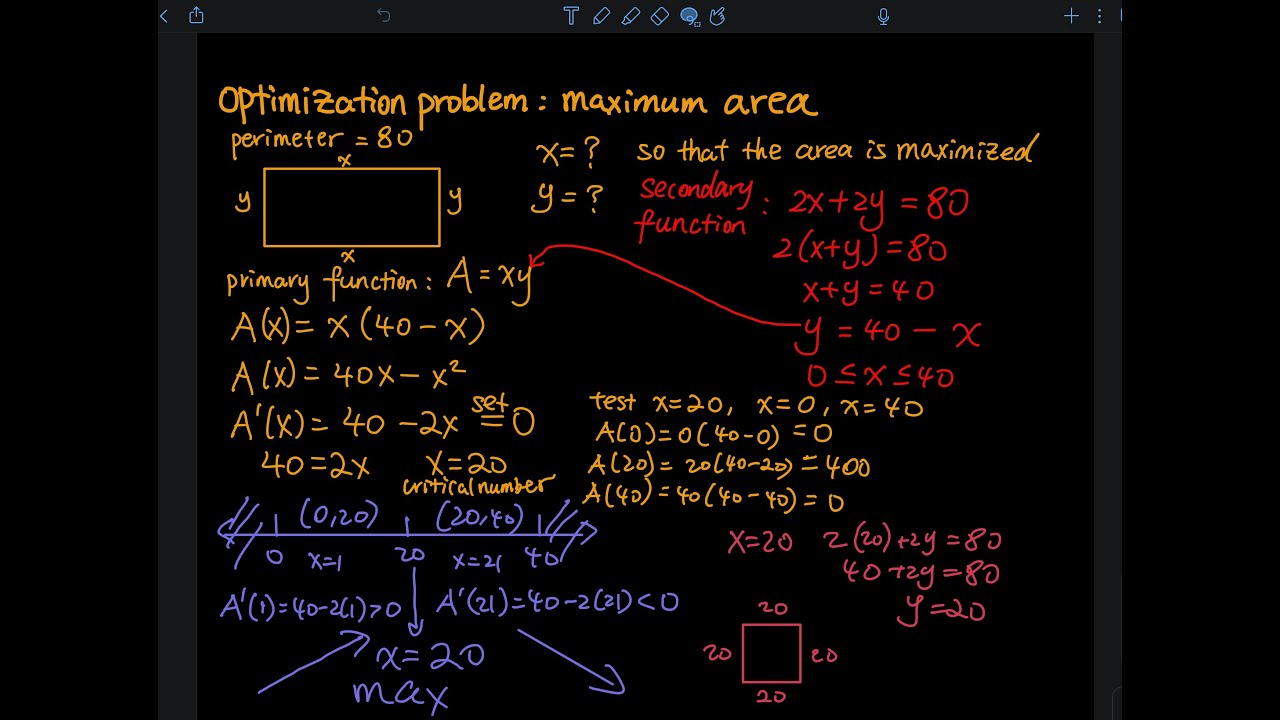 Optimization problem: maximum area
perimeter = 80
x
y
y
x
x = ?
y = ?
so that the area is maximized
secondary function: 2x+2y = 80
2(x+y) = 80
x+y = 40
y = 40 - x
0 ≤ x ≤ 40
primary function: A = xy
A(x) = x(40-x)
A(x) = 40x - x²
A'(x) = 40 - 2x set = 0
40 = 2x x = 20
critical number
test x=20, x=0, x=40
A(0) = 0(40-0) = 0
A(20) = 20(40-20) = 400
A(40) = 40(40-40) = 0
(0,20) (20,40)
0 x=1 20 x=21 40
A'(1) = 40-2(1) > 0 A'(21) = 40-2(21) < 0
x = 20
max
x=20 2(20)+2y = 80
40+2y = 80
y = 20
20
20
20
20